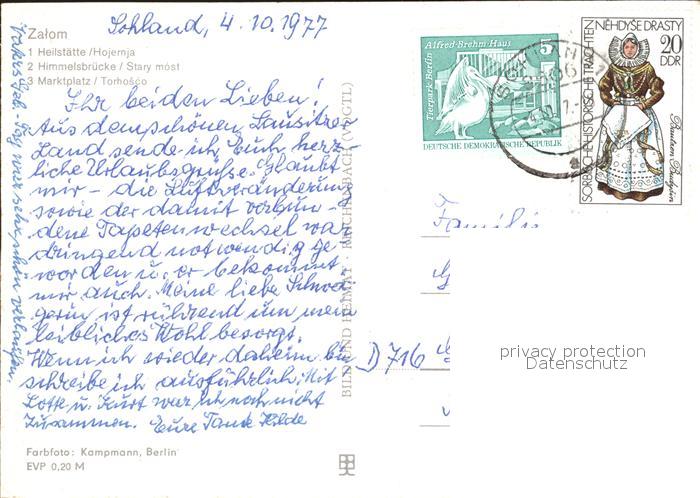 Sohland, 4.10.1977
Załom
1 Heilstätte / Hojernja
2 Himmelsbrücke / Stary móst
3 Marktplatz / Torhošćo
Ihr beiden Lieben!
Aus dem schönen Lausitzer
Land sende ich Euch herz-
liche Urlaubsgrüße. Glaubt
mir – die Luftveränderung
sowie der damit verbun-
dene Tapetenwechsel war
dringend notwendig ge-
worden u. er bekommt
mir auch. Meine liebe Schwä-
gerin ist rührend um mein
leibliches Wohl besorgt.
Wenn ich wieder daheim bin
schreibe ich ausführlich. Mit
Lotte u. Kurt war ich noch nicht
zusammen. Eure Tante Hilde
Geb.-Tag war sehr schön verlaufen.
Farbfoto: Kampmann, Berlin
EVP 0,20 M
BILD UND HEIMAT REICHENBACH (VOGTL)
Alfred-Brehm-Haus
5
Tierpark Berlin
DEUTSCHE DEMOKRATISCHE REPUBLIK
NĚHDYŠE DRASTY
20
DDR
SORBISCHE HISTORISCHE TRACHTEN
Bautzen Budyšin
Familie
D 716
privacy protection
Datenschutz